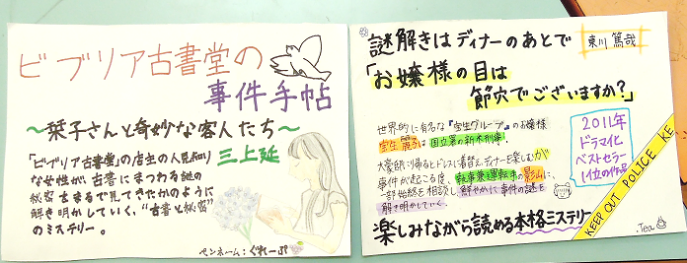 ビブリア古書堂の
事件手帖
～栞子さんと奇妙な客人たち～
三上延
「ビブリア古書堂」の店主の人見知り
な女性が、古書にまつわる謎の
秘密をまるで見てきたかのように
解き明かしていく、“古書と秘密”
のミステリー。
ペンネーム:ぐれーぷ
謎解きはディナーのあとで
東川篤哉
「お嬢様の目は
節穴でございますか?」
世界的に有名な『宝生グループ』のお嬢様
宝生麗子は国立署の新米刑事。
大豪邸に帰るとドレスに着替えディナーを楽しむが
事件が起こる度、執事兼運転手の影山に
一部始終を相談し、鮮やかに事件の謎を
解き明かしていく。
2011年
ドラマ化
ベストセラー
1位の作品
KEEP OUT POLICE KE
楽しみながら読める本格ミステリー
.Tea